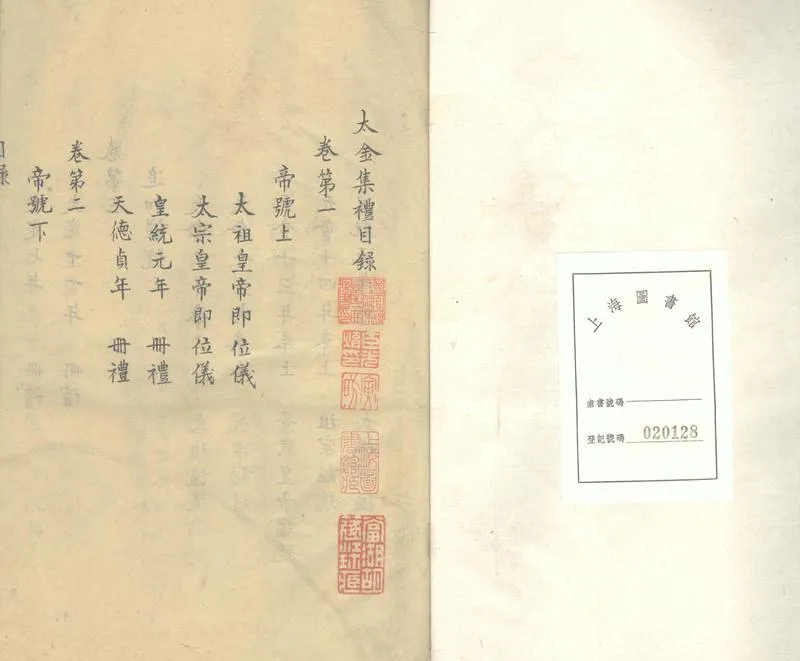 上海圖書館
索書號碼
登記號碼 020128
太金集禮目録
卷第一
帝號上
太祖皇帝即位儀
太宗皇帝即位儀
皇統元年 冊禮
天德貞年 冊禮
卷第二
帝號下
目録
上海圖書館藏